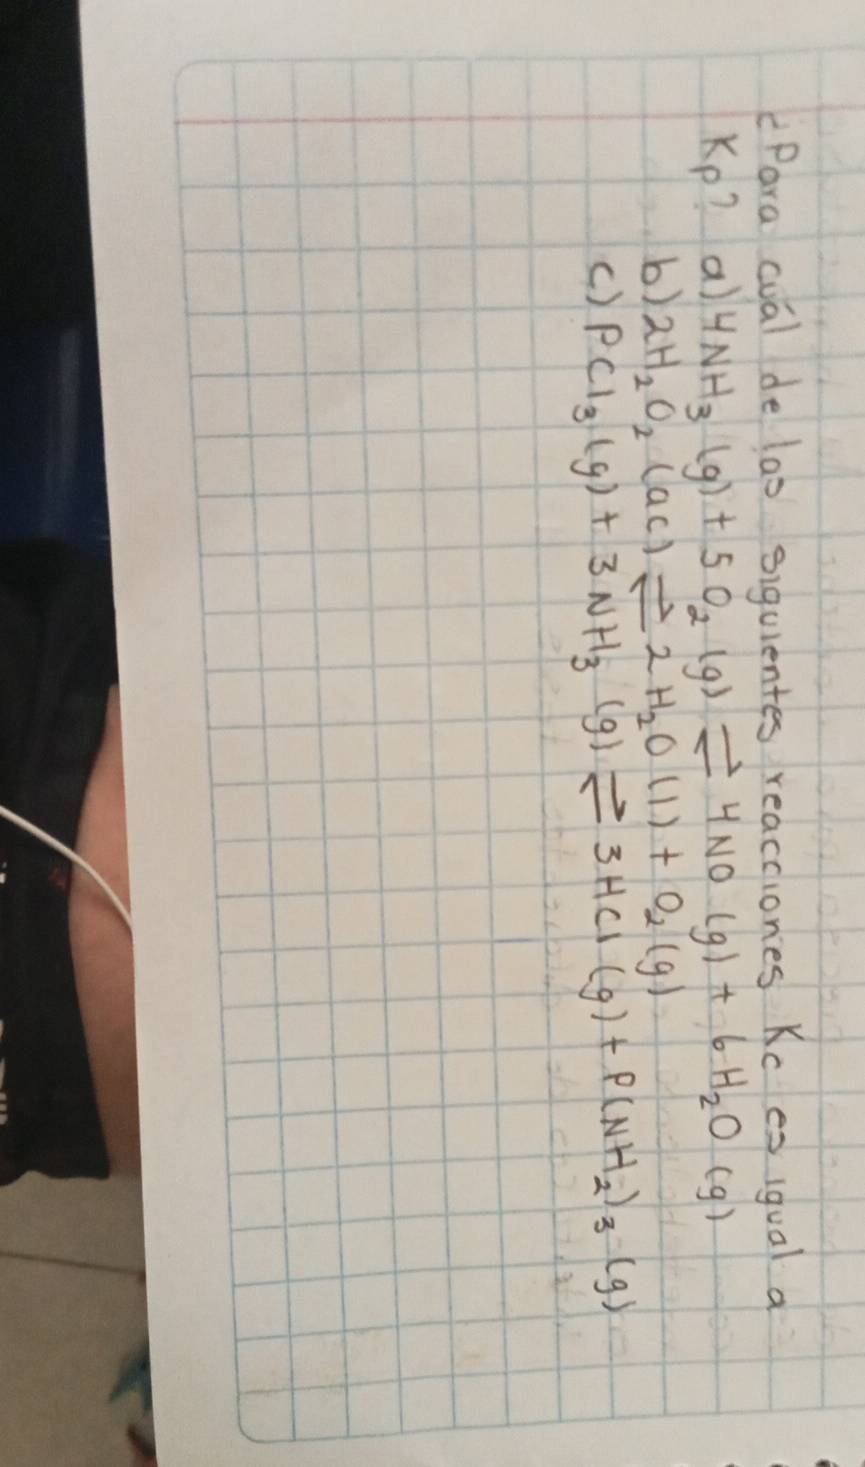 ¿Para cuál de las siguientes reacciones Kc es igual a
Kp? a) 4NH₃ (g) + 5O₂ (g) ⇌ 4NO (g) + 6H₂O (g)
b) 2H₂O₂ (ac) ⇌ 2H₂O (l) + O₂ (g)
c) PCl₃ (g) + 3NH₃ (g) ⇌ 3HCl (g) + P(NH₂)₃ (g)